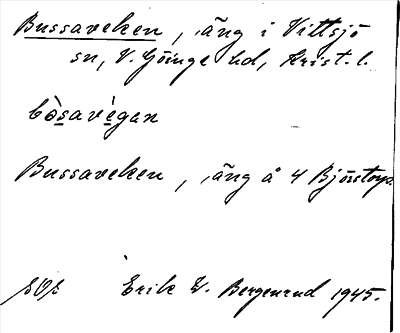 Bussaveken, äng i Vittsjö
sn, V. Göinge hd, Krist. l.
bòsavègan
Bussaveken, äng å 4 Björstorp.
Erik W. Bergenrud 1945.